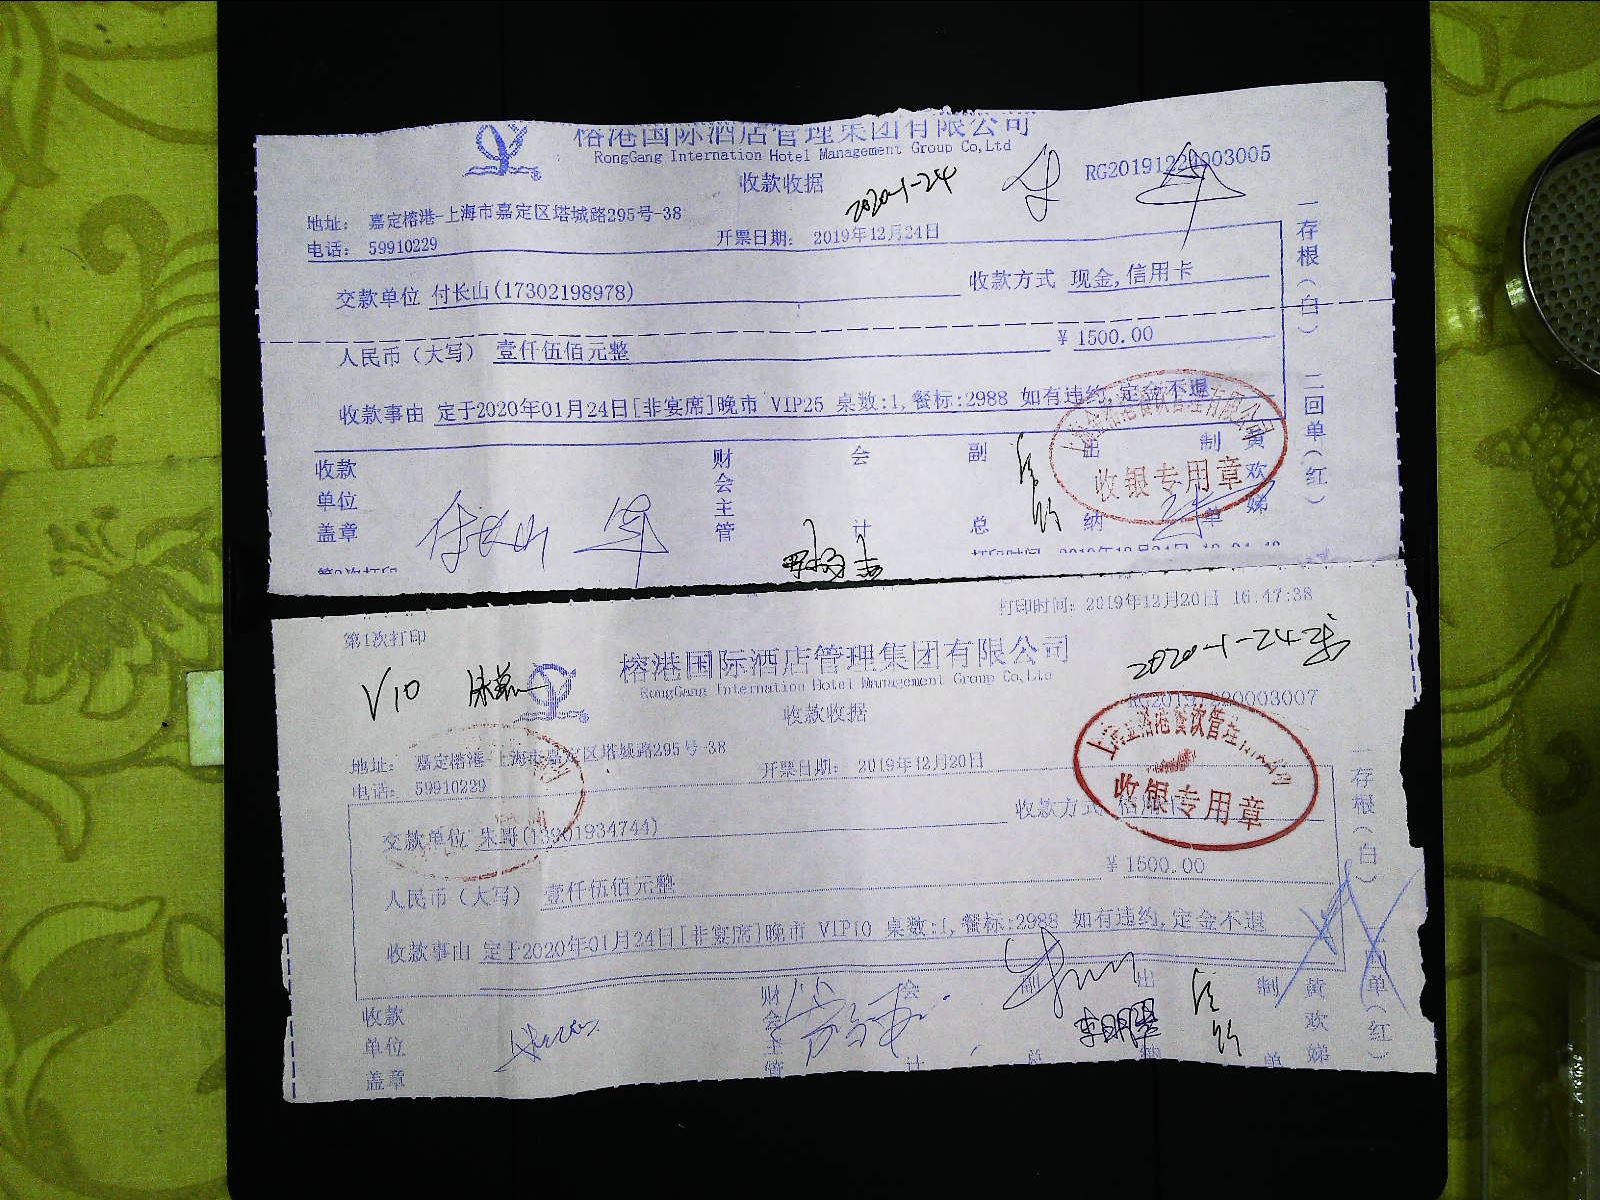 榕港国际酒店管理集团有限公司
RongGang Internation Hotel Management Group Co,Ltd
收款收据
2020-1-24
地址： 嘉定榕港-上海市嘉定区塔城路295号-38
电话： 59910229
开票日期： 2019年12月24日
交款单位 付长山(17302198978)
收款方式 现金,信用卡
人民币（大写） 壹仟伍佰元整
￥ 1500.00
收款事由 定于2020年01月24日[非宴席]晚市 VIP25 桌数:1,餐标:2988 如有违约,定金不退
收款单位盖章
付长山
财会主管
会计
副总
出纳
制单
黄欢娣
收银专用章
一存根（白） 二回单（红）
第1次打印
打印时间： 2019年12月20日 16:47:38
V10
榕港国际酒店管理集团有限公司
RongGang Internation Hotel Management Group Co,Ltd
收款收据
2020-1-24
地址： 嘉定榕港-上海市嘉定区塔城路295号-38
电话： 59910229
开票日期： 2019年12月20日
收银专用章
交款单位 朱哥(13901934744)
收款方式 信用卡
人民币（大写） 壹仟伍佰元整
￥ 1500.00
收款事由 定于2020年01月24日[非宴席]晚市 VIP10 桌数:1,餐标:2988 如有违约,定金不退
收款单位盖章
财会主管
会计
副总
出纳
制单
黄欢娣
一存根（白）
单（红）